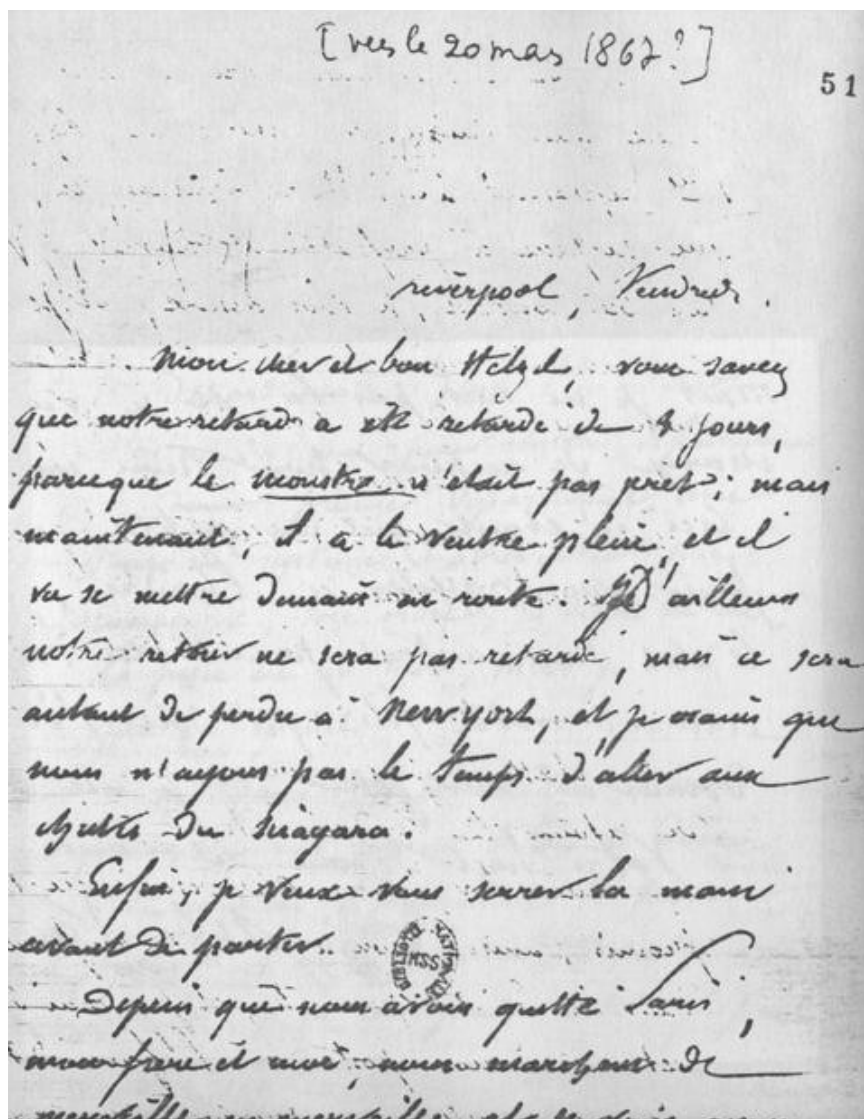 [vers le 20 mars 1867?]
51
Liverpool, Vendredi.
Mon cher et bon Hetzel, vous savez
que notre retard a été retardé de 4 jours,
parce que le monstre n'était pas prêt; mais
maintenant, il a le ventre plein et il
va se mettre demain en route. D'ailleurs
notre retour ne sera pas retardé, mais ce sera
autant de perdu à New york, et je crains que
nous n'ayons pas le temps d'aller aux
chutes du Niagara.
Enfin, je veux vous serrer la main
avant de partir.
BIBLIOTHÈQUE NATIONALE MSS
Depuis que nous avons quitté Paris,
mon frère et moi, nous marchons de
merveille en merveille, et